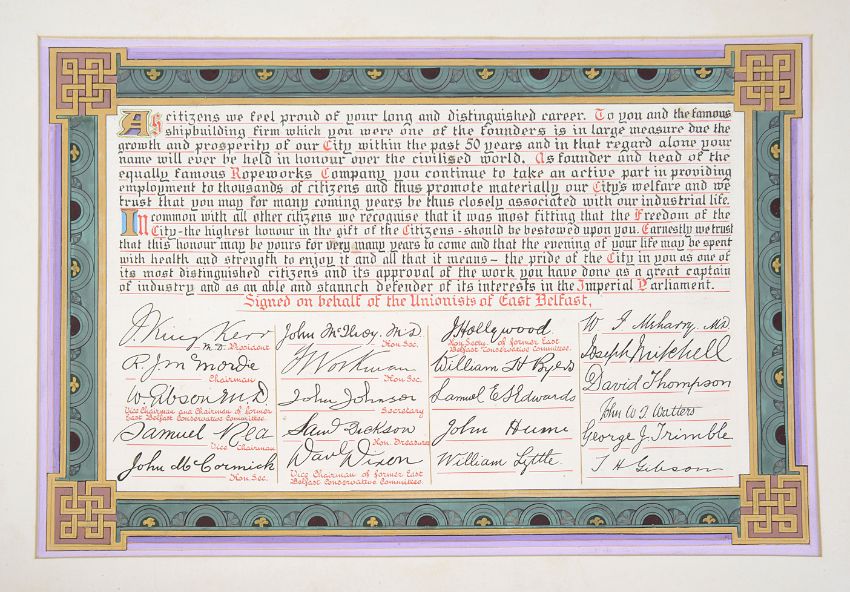 As citizens we feel proud of your long and distinguished career. To you and the famous
shipbuilding firm which you were one of the founders is in large measure due the
growth and prosperity of our City within the past 50 years and in that regard alone your
name will ever be held in honour over the civilised world. As founder and head of the
equally famous Ropeworks Company you continue to take an active part in providing
employment to thousands of citizens and thus promote materially our City's welfare and we
trust that you may for many coming years be thus closely associated with our industrial life.
In common with all other citizens we recognise that it was most fitting that the Freedom of the
City - the highest honour in the gift of the Citizens - should be bestowed upon you. Earnestly we trust
that this honour may be yours for very many years to come and that the evening of your life may be spent
with health and strength to enjoy it and all that it means - the pride of the City in you as one of
its most distinguished citizens and its approval of the work you have done as a great captain
of industry and as an able and staunch defender of its interests in the Imperial Parliament.
Signed on behalf of the Unionists of East Belfast,
J. King Kerr
M.D. President
R. J. McMordie
Chairman
W Gibson M.D.
Vice Chairman and Chairman of former
East Belfast Conservative Committee.
Samuel Rea
Vice Chairman
John McCormick
Hon. Sec.
John McIlroy. M.D.
Hon Sec.
Workman
Hon Sec.
John Johnson
Secretary
Saml Dickson
Hon. Treasurer
Davd Dixon
Vice Chairman of former East
Belfast Conservative Committee.
J Hollywood
Hon Secty. of former East
Belfast Conservative Committee.
William H Byers
Samuel E S Edwards
John Hume
William Lyttle
W J M.D.
Joseph Mitchell
David Thompson
John W J Watters
George J. Trimble
J H Gibson